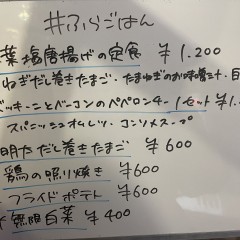 #ふらごはん
菜塩唐揚げの定食 ¥1.200
ねぎだし巻きたまご、たまねぎのお味噌汁、
ッキーニとベーコンのペペロンチーノセット ¥1.
スパニッシュオムレツ、コンソメスープ
明太だし巻きたまご ¥600
鶏の照り焼き ¥600
フライドポテト ¥600
無限白菜 ¥400